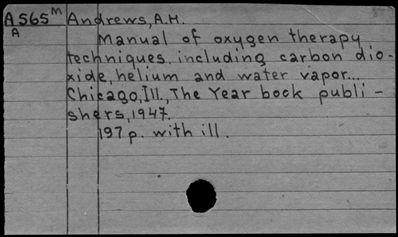 A565ᵐ Andrews, A.H.
A
Manual of oxygen therapy
techniques including carbon dio-
xide, helium and water vapor...
Chicago, Ill., The Year book publi-
shers, 1947.
197 p. with ill.